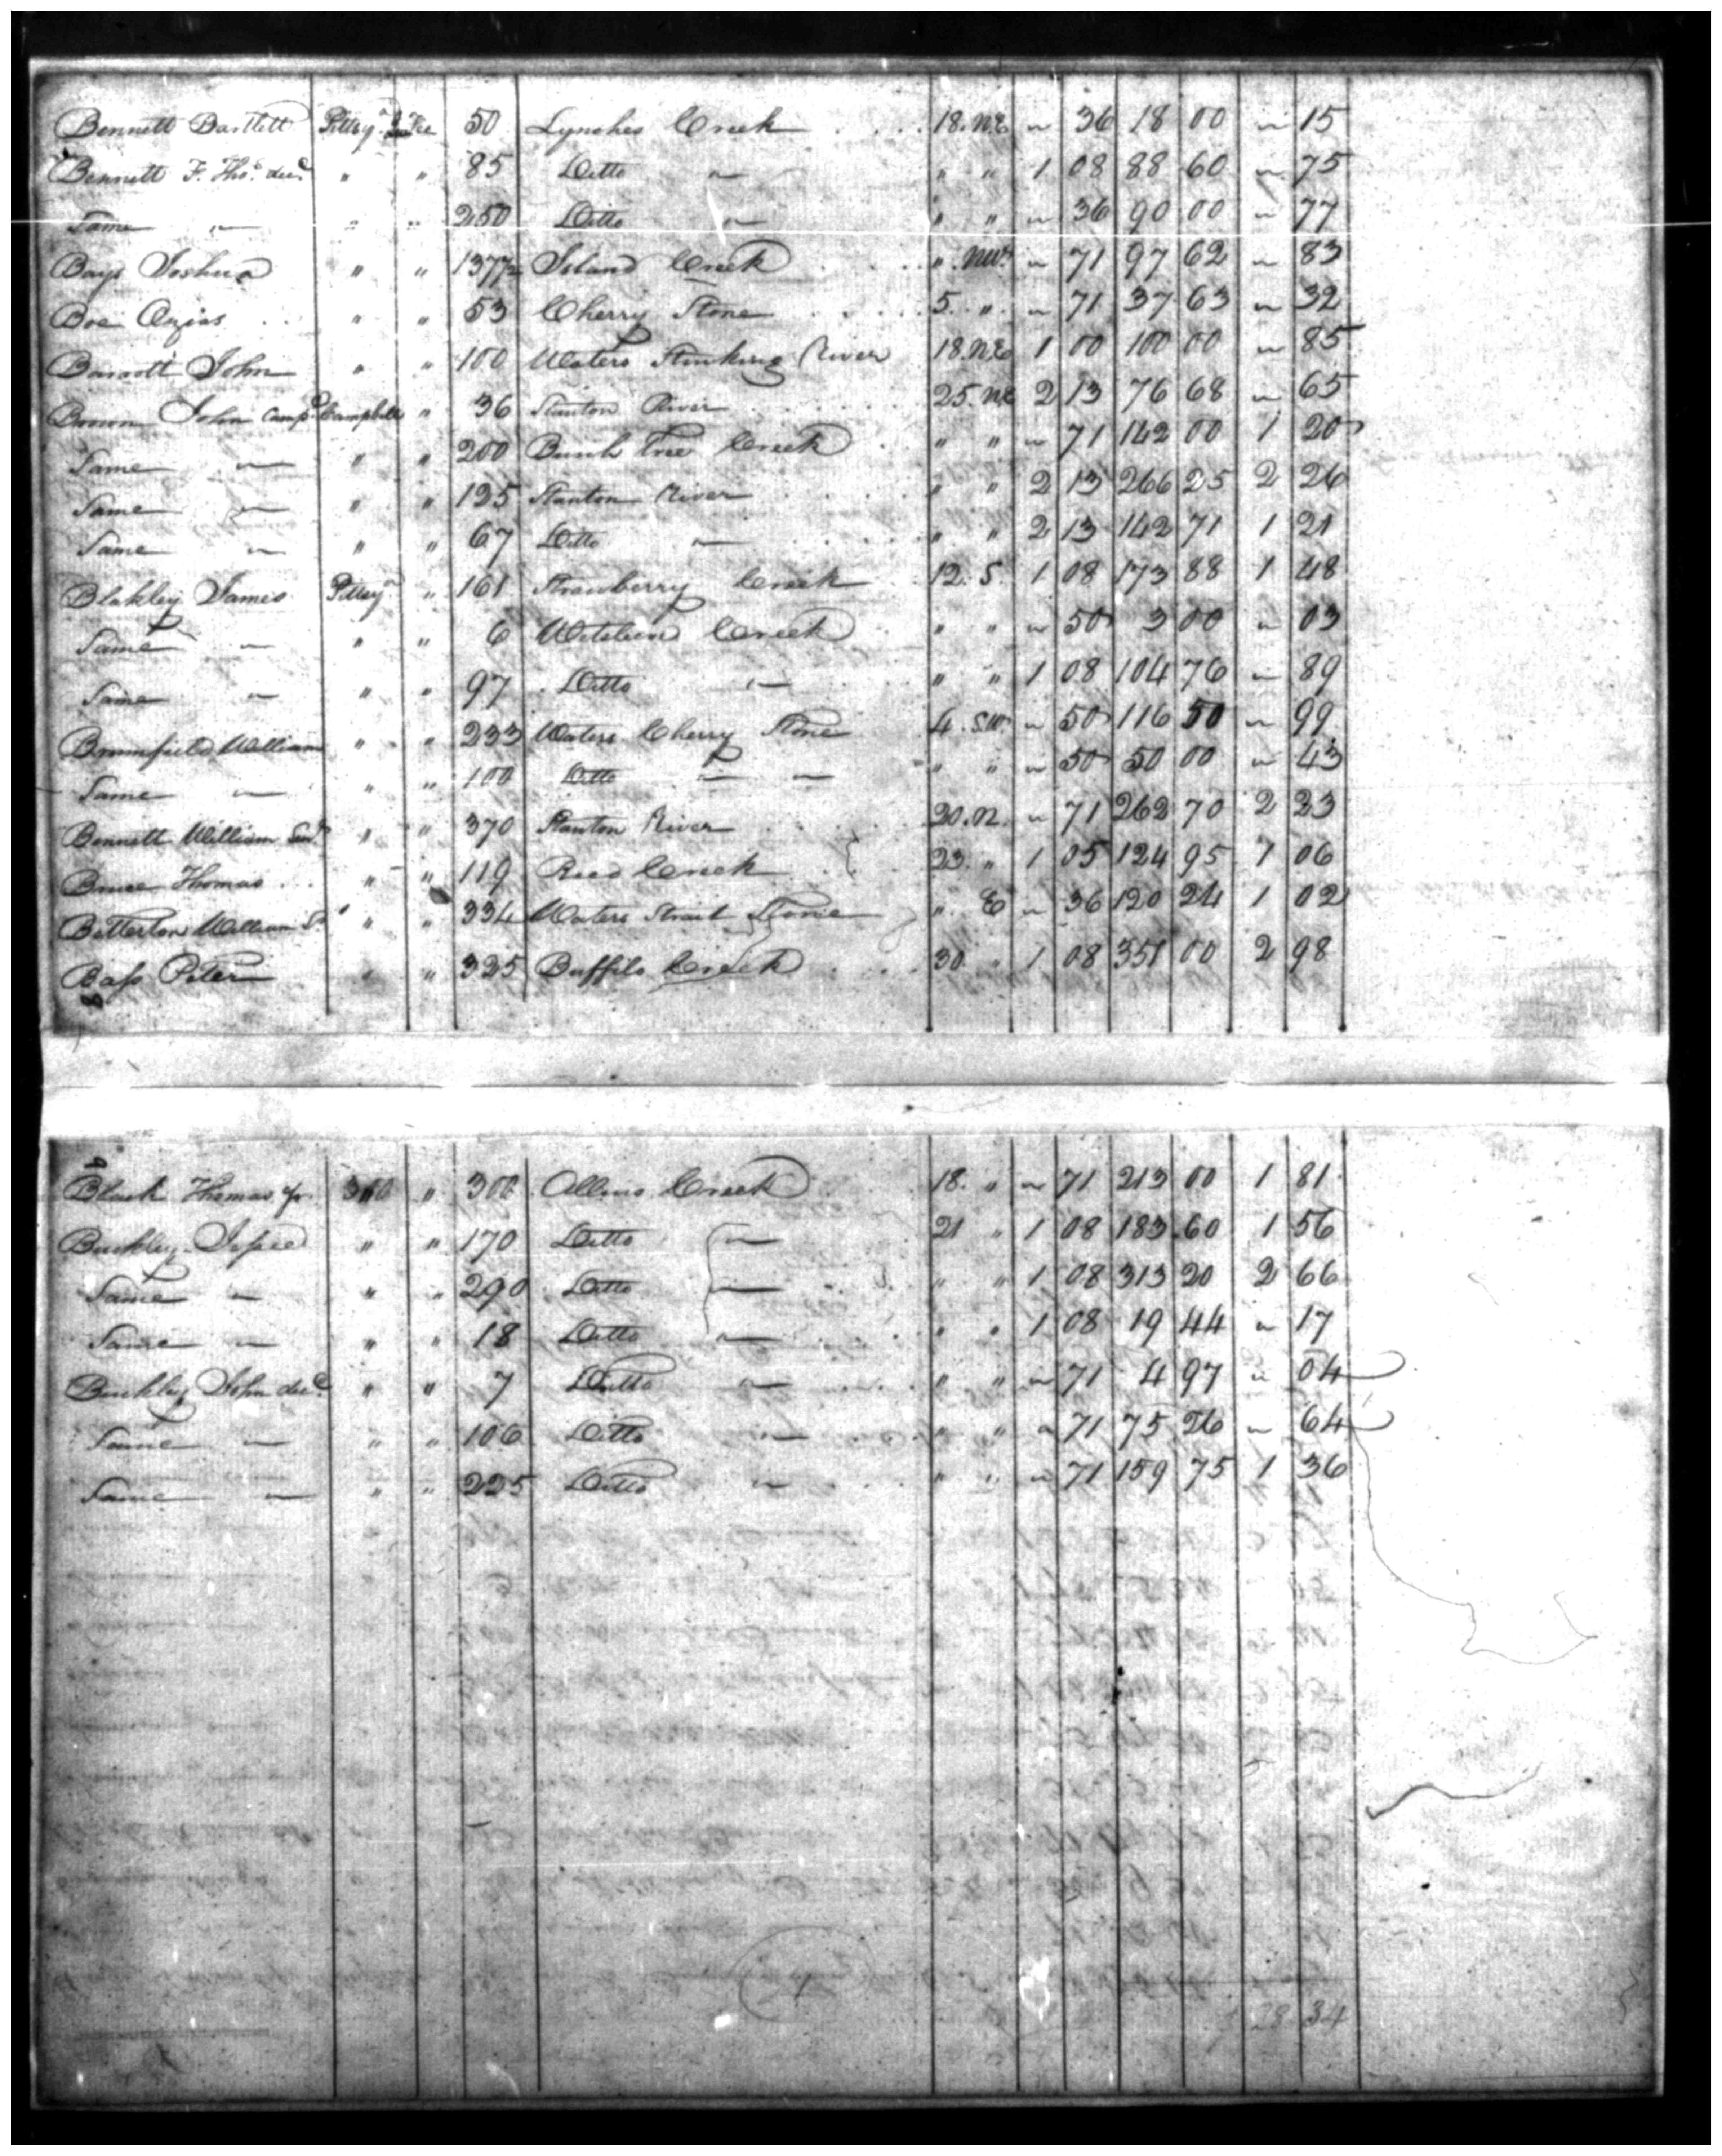 Bennett Bartlett Pittsyª Fee 50 Lynches Creek 18. N.E. " 36 18 00 " 15
Bennett F. Thoˢ. decᵈ " " 85 Ditto " " " 1 08 88 60 " 75
Same " " " 250 Ditto " " " " 36 90 00 " 77
Bays Joshua " " 137½ Island Creek " NW. " 71 97 62 " 83
Boe Ozias " " 53 Cherry Stone 5. " " 71 37 63 " 32
John " " 100 Waters Stinking River 18. N.E. 1 00 100 00 " 85
Brown John Campᵇ Campbell " 36 Stanton River 25. N.E 2 13 76 68 " 65
Same " " " 200 Creek " " " 71 142 00 1 20
Same " " " 125 Stanton River " " 2 13 266 25 2 26
Same " " " 67 Ditto " " " 2 13 142 71 1 21
Blakley James Pittsyª " 161 Strawberry Creek 12. S. 1 08 173 88 1 48
Same " " " 6 Creek " " " 50 3 00 " 03
Same " " " 97 Ditto " " " 1 08 104 76 " 89
Brumfield William " " 233 Waters Cherry Stone 4. SW. " 50 116 50 " 99
Same " " " 100 Ditto " " " " " 50 50 00 " 43
Bennett William Senʳ " " 370 Stanton River 20. N. " 71 262 70 2 23
Bruce Thomas " " 119 Reed Creek 23. " 1 05 124 95 1 06
Betterton William Sʳ " " 334 Waters Strait Stone " E " 36 120 24 1 02
Bass Peter " " 325 Buffilo Creek 30 " 1 08 351 00 2 98
Black Thomas " 300 Allins Creek 18. " " 71 213 00 1 81
Buckley Jesse " " 170 Ditto " 21 " 1 08 183 60 1 56
Same " " " 290 Ditto " " " 1 08 313 20 2 66
Same " " " 18 Ditto " " " 1 08 19 44 " 17
Buckley John decᵈ " " 7 Ditto " " " " 71 4 97 " 04
Same " " " 106 Ditto " " " " 71 75 26 " 64
Same " " " 225 Ditto " " " " 71 159 75 1 36
28 34